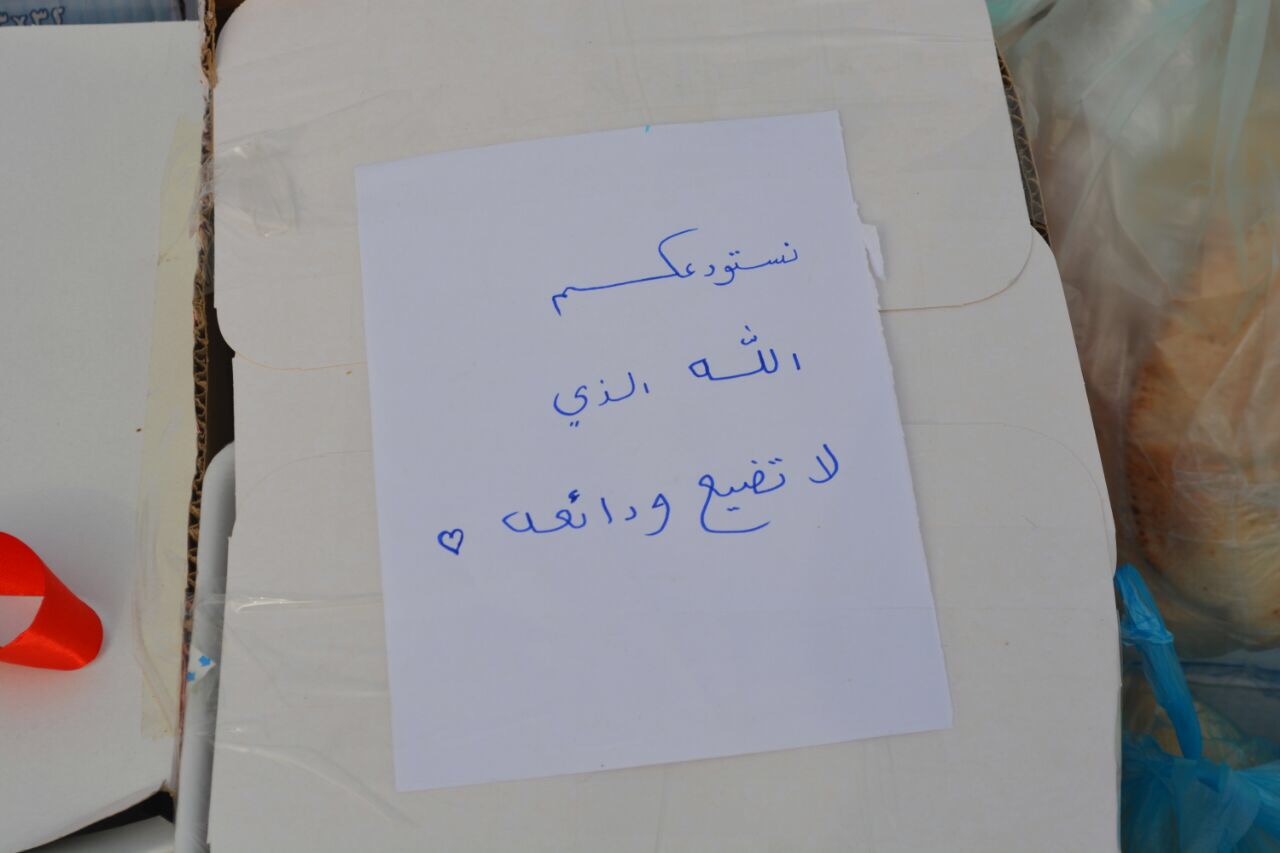 نستودعكم
الله الذي
لا تضيع ودائعه ♡